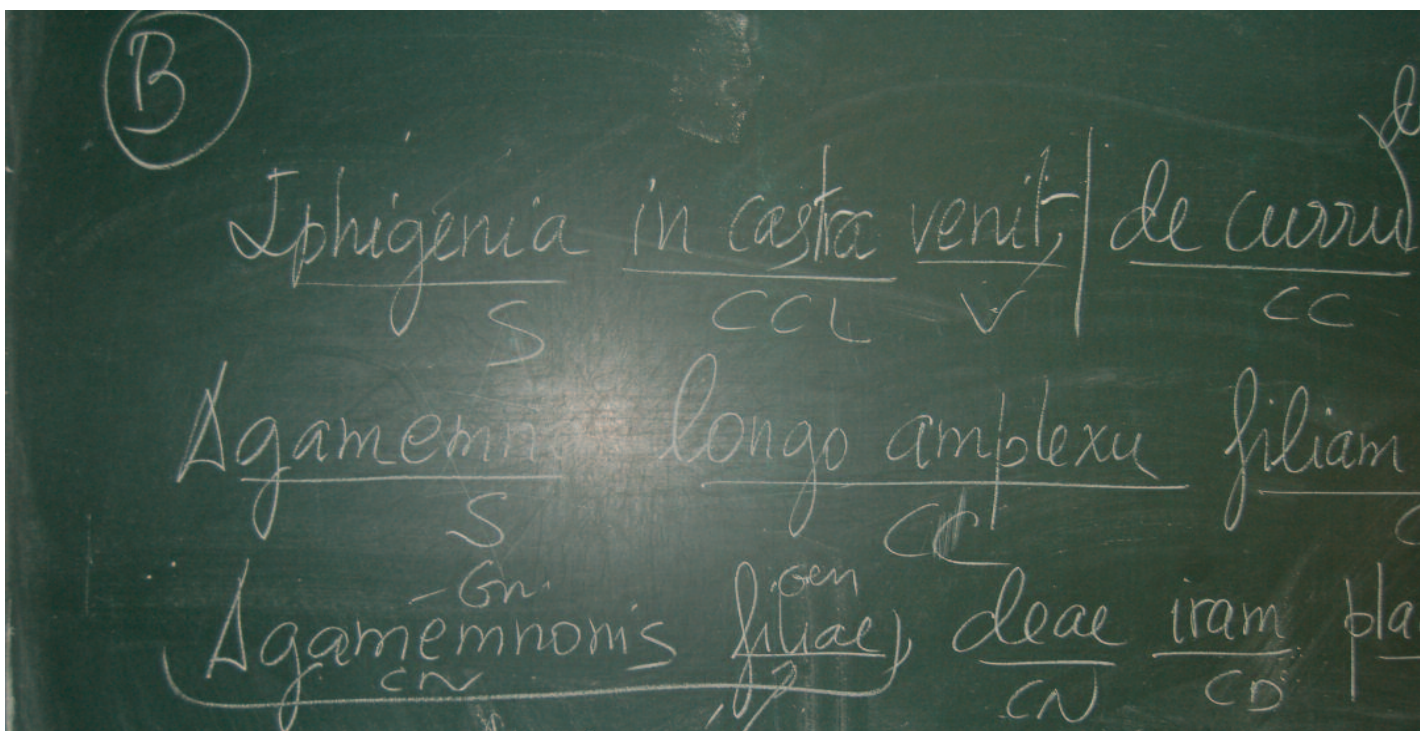 B
Iphigenia in castra venit, de curru
S CCL V CC
longo amplexu filiam
S CC
Gn. Gen
Agamemnonis filiae, deae iram
CN CN CD